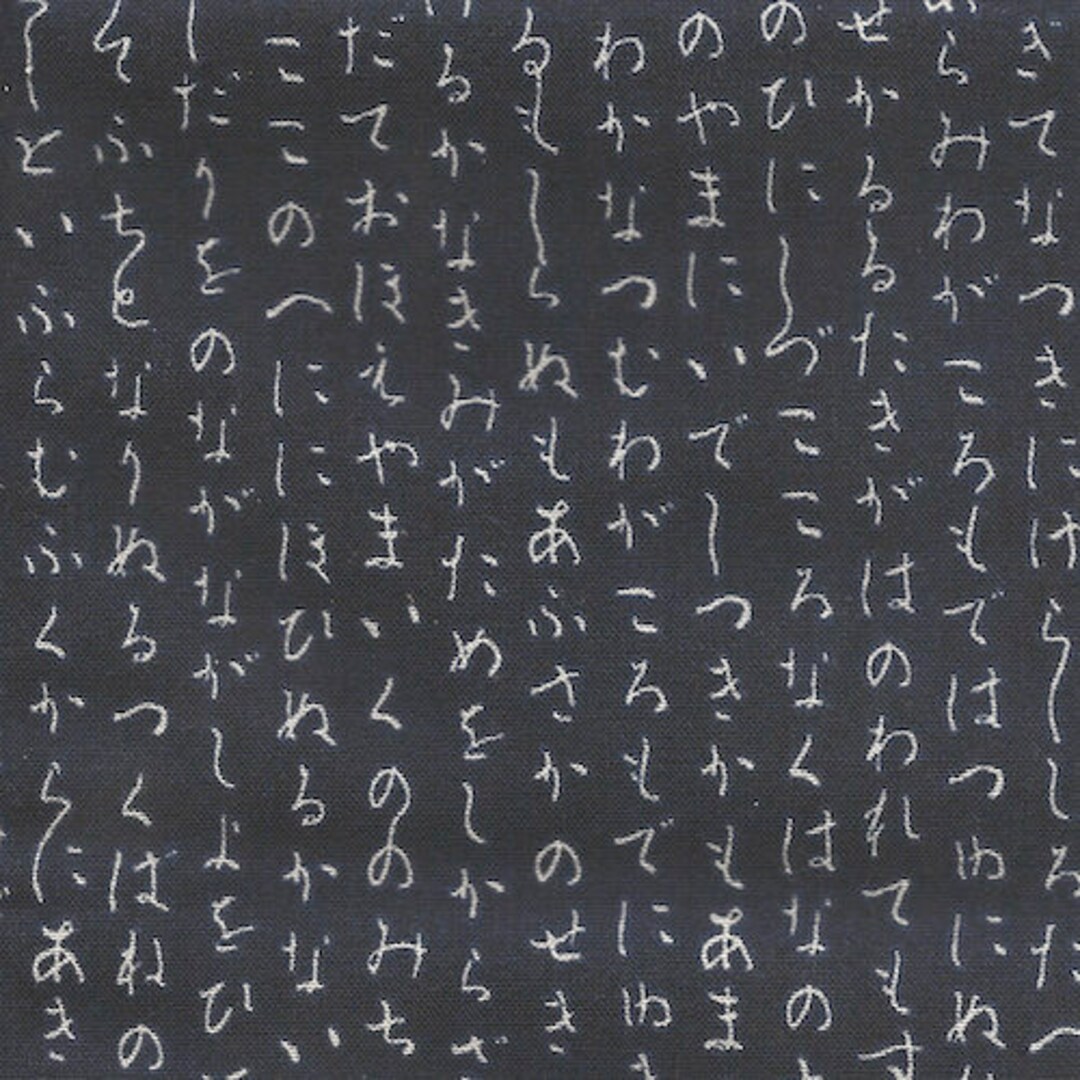 きてなつきにけらししろた
らみわがころもではつゆにぬ
せかるるたきがはのわれてもす
のひにしづこころなくはなの
のやまにいでしつきかもあま
わかなつむわがころもでにゆ
るもしらぬもあふさかのせき
るかなきみがためをしからざ
だておほえやまいくののみち
ここのへににほひぬるかない
しだりをのながながしよをひ
そふちとなりぬるつくはねの
しといふらむふくからにあき